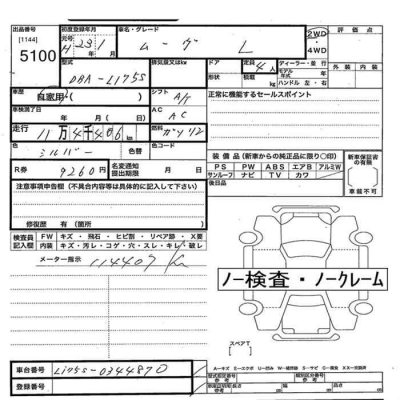 出品番号
[1144]
5100
初度登録年月
元号
H 23 年 1 月
車名・グレード
ムーヴ L
2WD
・
4WD
評価点
外装 内装
型式
DBA-L175S
排気量又はkW
ドア
定員
4人
ディーラー・並行
モデル年式
車歴
自家用
シフト
A/T
車検満了日
年 月 日
AC
AC
正常に機能するセールスポイント
走行
11万4千406 km
燃料
ガソリン
色
シルバー
色替
R券
9260円
名変通知
提出期限
装備品（新車からの純正品に限り○印）
PS PW ABS エアB アルミW
サンルーフ ナビ TV カワ
新車保証書
の有無
車載不可
後日品
注意事項申告欄（不具合内容等は具体的に記入して下さい）
修復歴 有（箇所 ）
検査員記入欄
FW キズ・飛石・ヒビ割・リペア跡・X要
内装 キズ・汚レ・コゲ・穴・スレ・キレ・破レ
メーター指示 114407 K
ノー検査・ノークレーム
スペアT
車台番号
L175S-0344870
登録番号
A－キズ E－エクボ U－凹ミ W－補修跡 S－サビ
型式指定番号
類別区分番号
長さ
幅
高さ